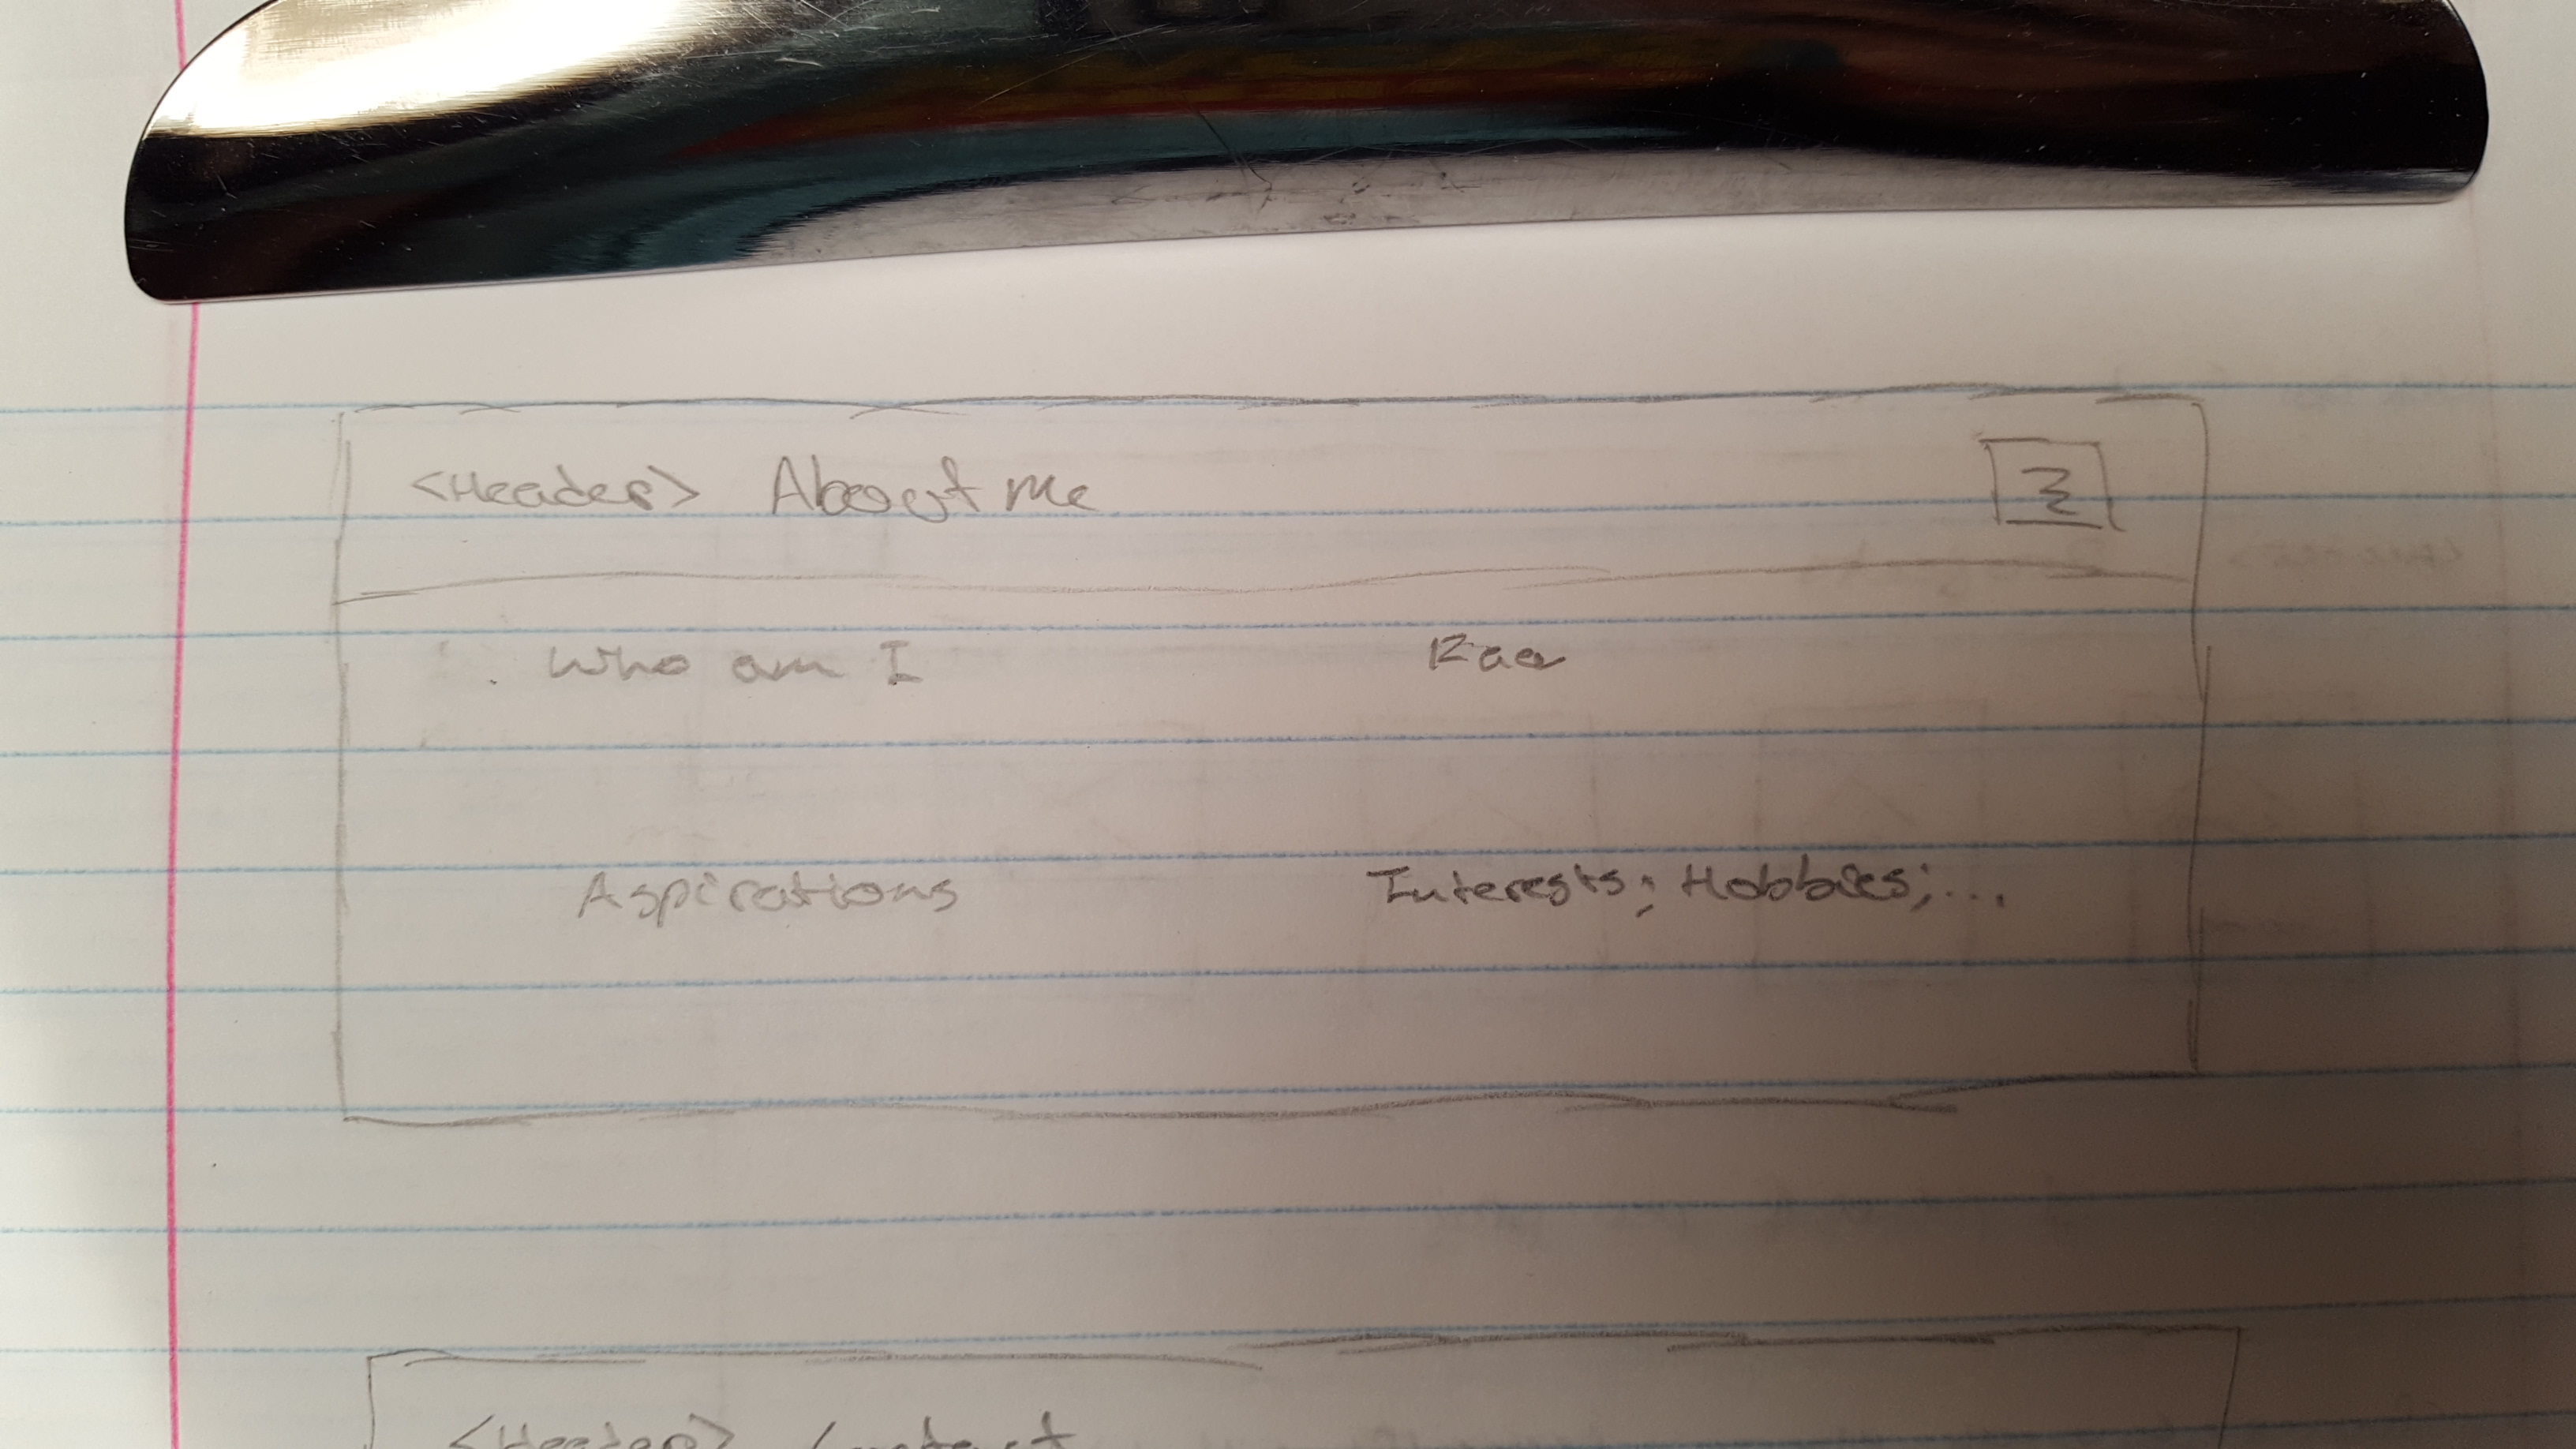 <Header> About Me
Who am I
Aspirations Interests; Hobbies;...
<Header> Contact